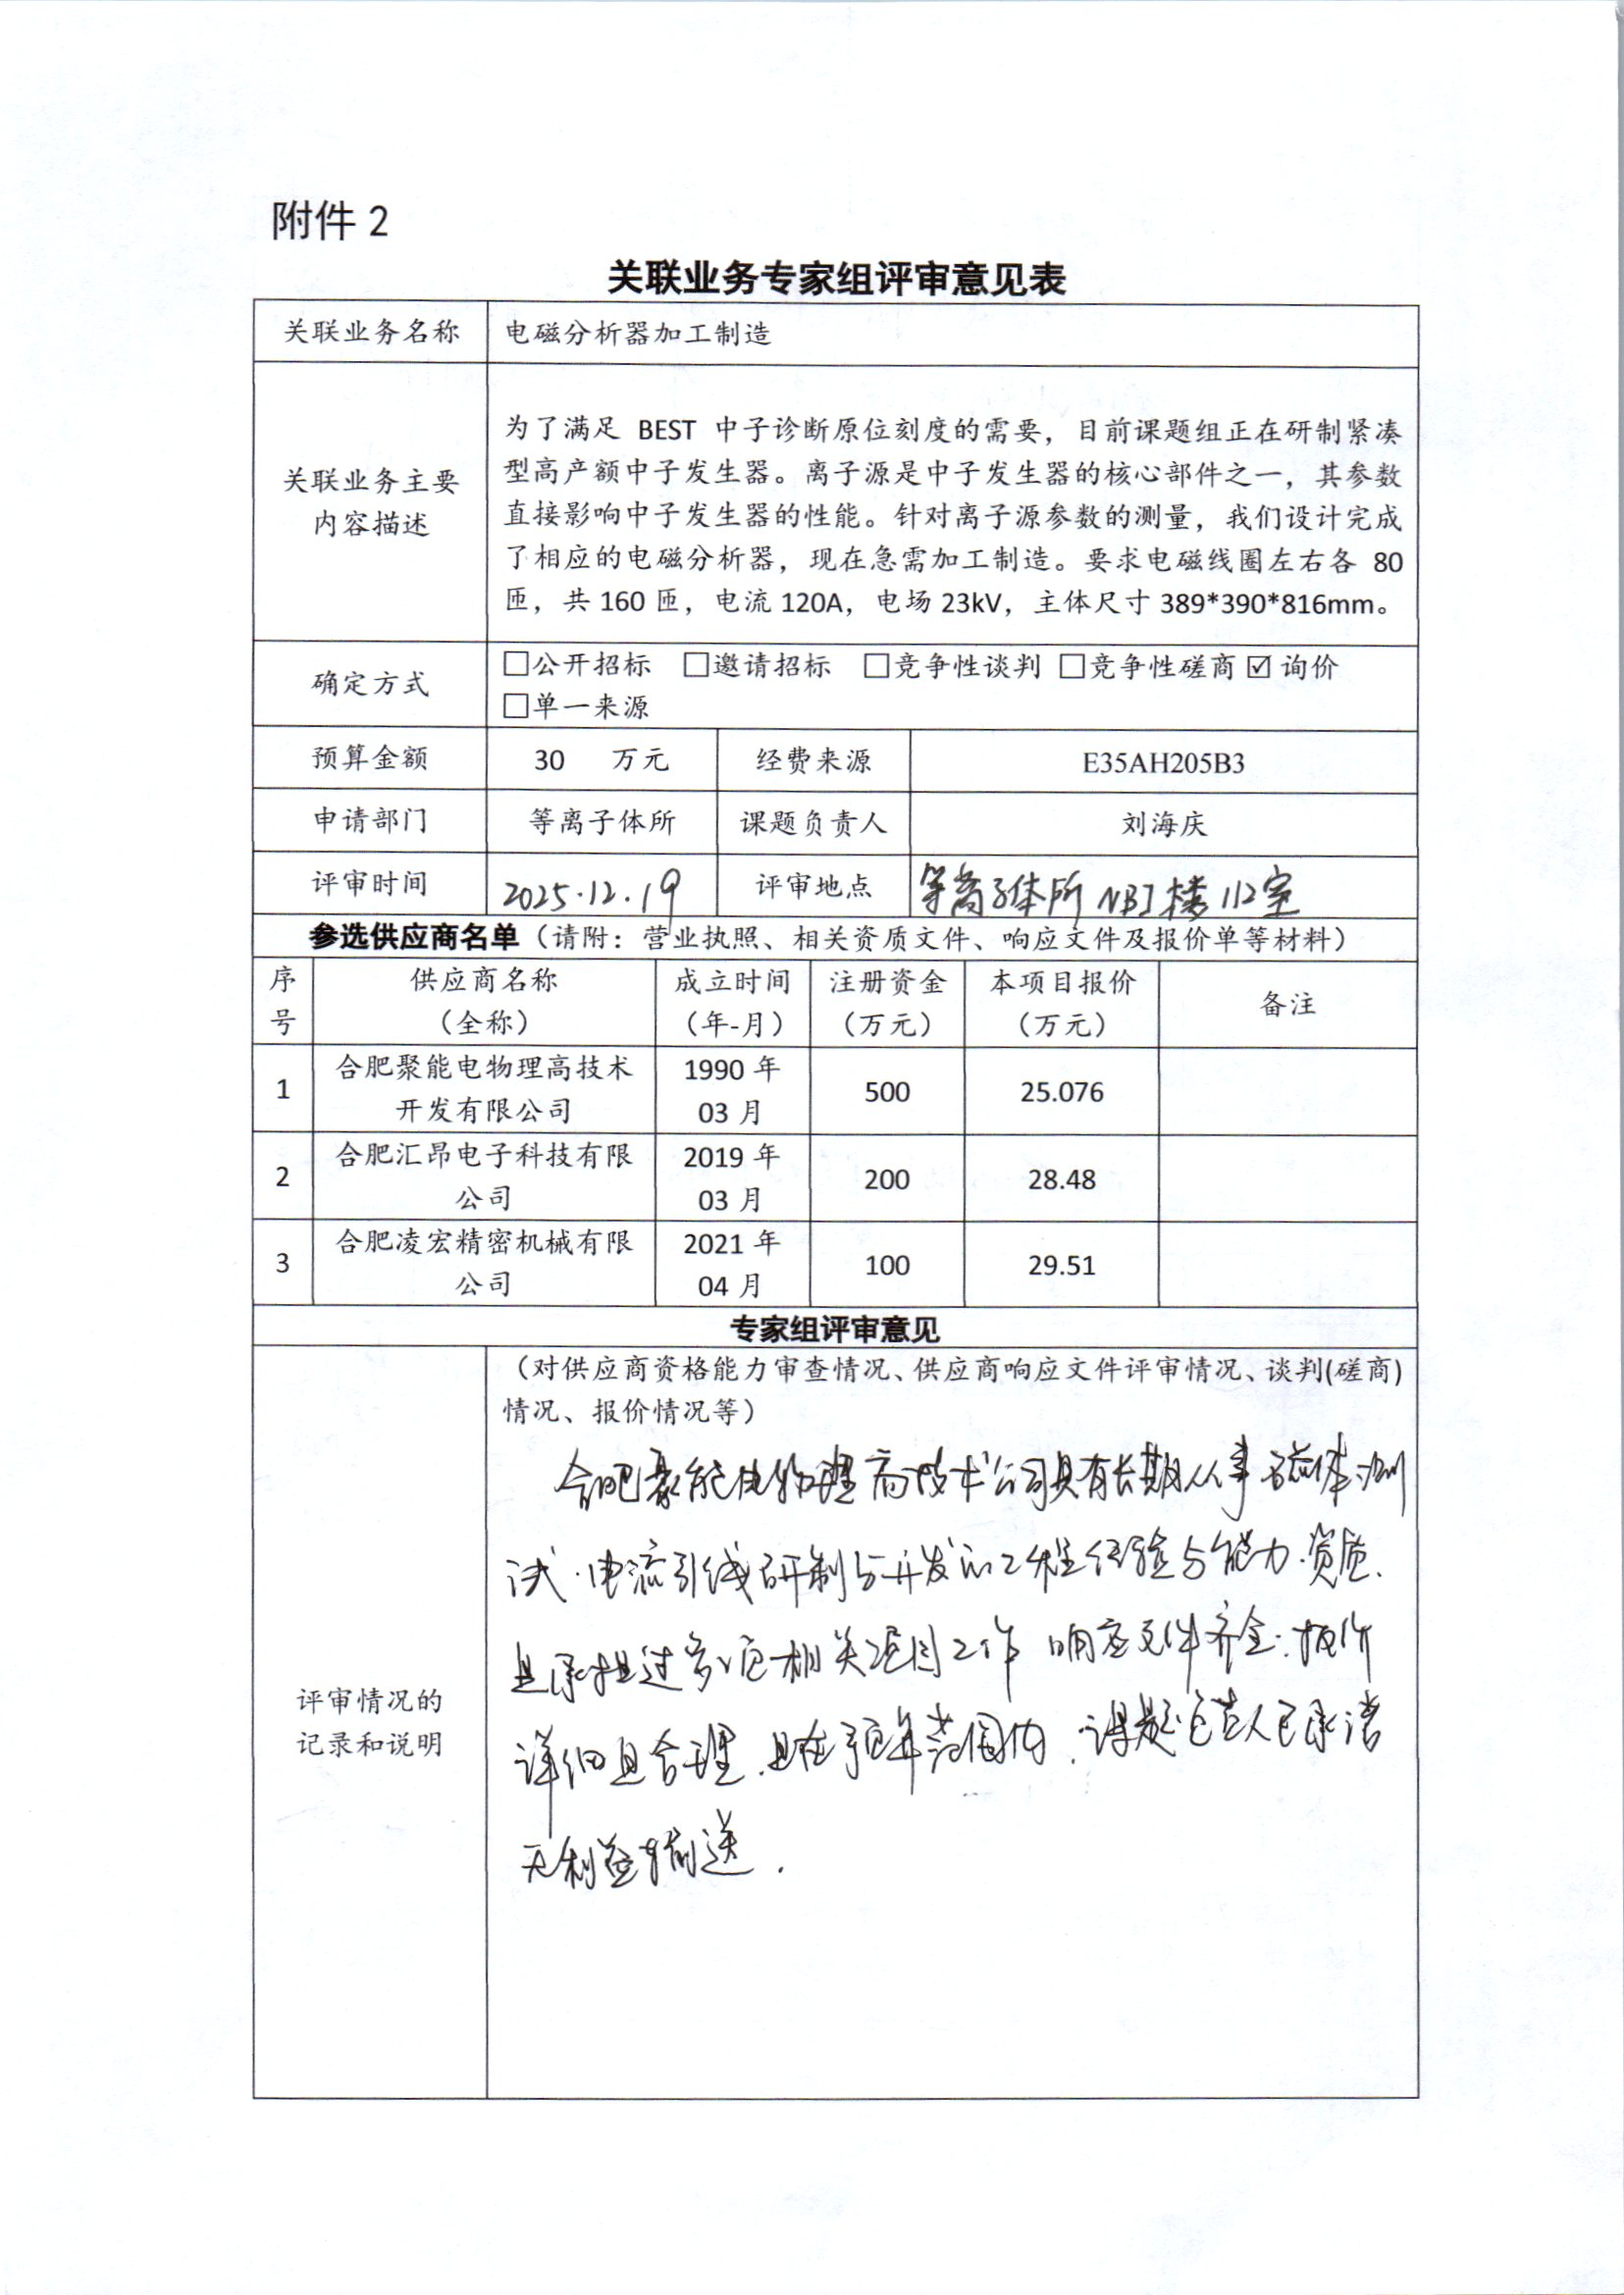 附件 2
关联业务专家组评审意见表
关联业务名称 电磁分析器加工制造
关联业务主要
内容描述
为了满足 BEST 中子诊断原位刻度的需要，目前课题组正在研制紧凑
型高产额中子发生器。离子源是中子发生器的核心部件之一，其参数
直接影响中子发生器的性能。针对离子源参数的测量，我们设计完成
了相应的电磁分析器，现在急需加工制造。要求电磁线圈左右各 80
匝，共 160 匝，电流 120A，电场 23kV，主体尺寸 389*390*816mm。
确定方式
□公开招标 □邀请招标 □竞争性谈判 □竞争性磋商 ☑ 询价
□单一来源
预算金额 30 万元 经费来源 E35AH205B3
申请部门 等离子体所 课题负责人 刘海庆
评审时间 2025.12.19 评审地点 等离子体所 NBI楼 112室
参选供应商名单（请附：营业执照、相关资质文件、响应文件及报价单等材料）
序号 供应商名称（全称） 成立时间（年-月） 注册资金（万元） 本项目报价（万元） 备注
1 合肥聚能电物理高技术开发有限公司 1990 年 03 月 500 25.076
2 合肥汇昂电子科技有限公司 2019 年 03 月 200 28.48
3 合肥凌宏精密机械有限公司 2021 年 04 月 100 29.51
专家组评审意见
评审情况的
记录和说明
（对供应商资格能力审查情况、供应商响应文件评审情况、谈判(磋商)
情况、报价情况等）
合肥聚能电物理高技术公司具有长期从事磁体测
试、电流引线研制与开发的工程经验与能力、资质、
且承担过多项相关项目工作 响应文件齐全；报价
详细且合理，且在预算范围内，课题负责人已承诺
无利益输送．